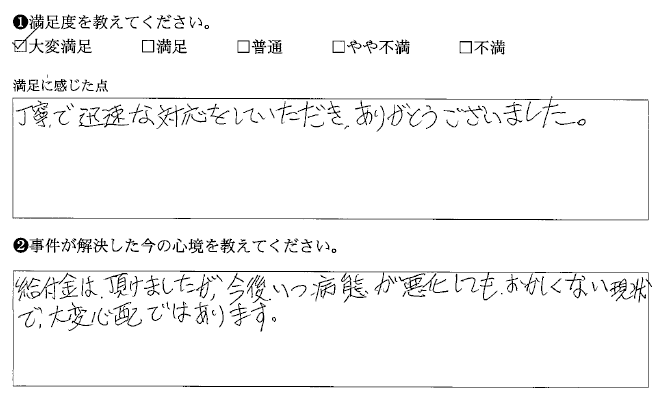 ❶満足度を教えてください。
☑大変満足 □満足 □普通 □やや不満 □不満
満足に感じた点
丁寧で迅速な対応をしていただき、ありがとうございました。
❷事件が解決した今の心境を教えてください。
給付金は、頂けましたが、今後、いつ病態が悪化しても、おかしくない現状
で、大変心配ではあります。